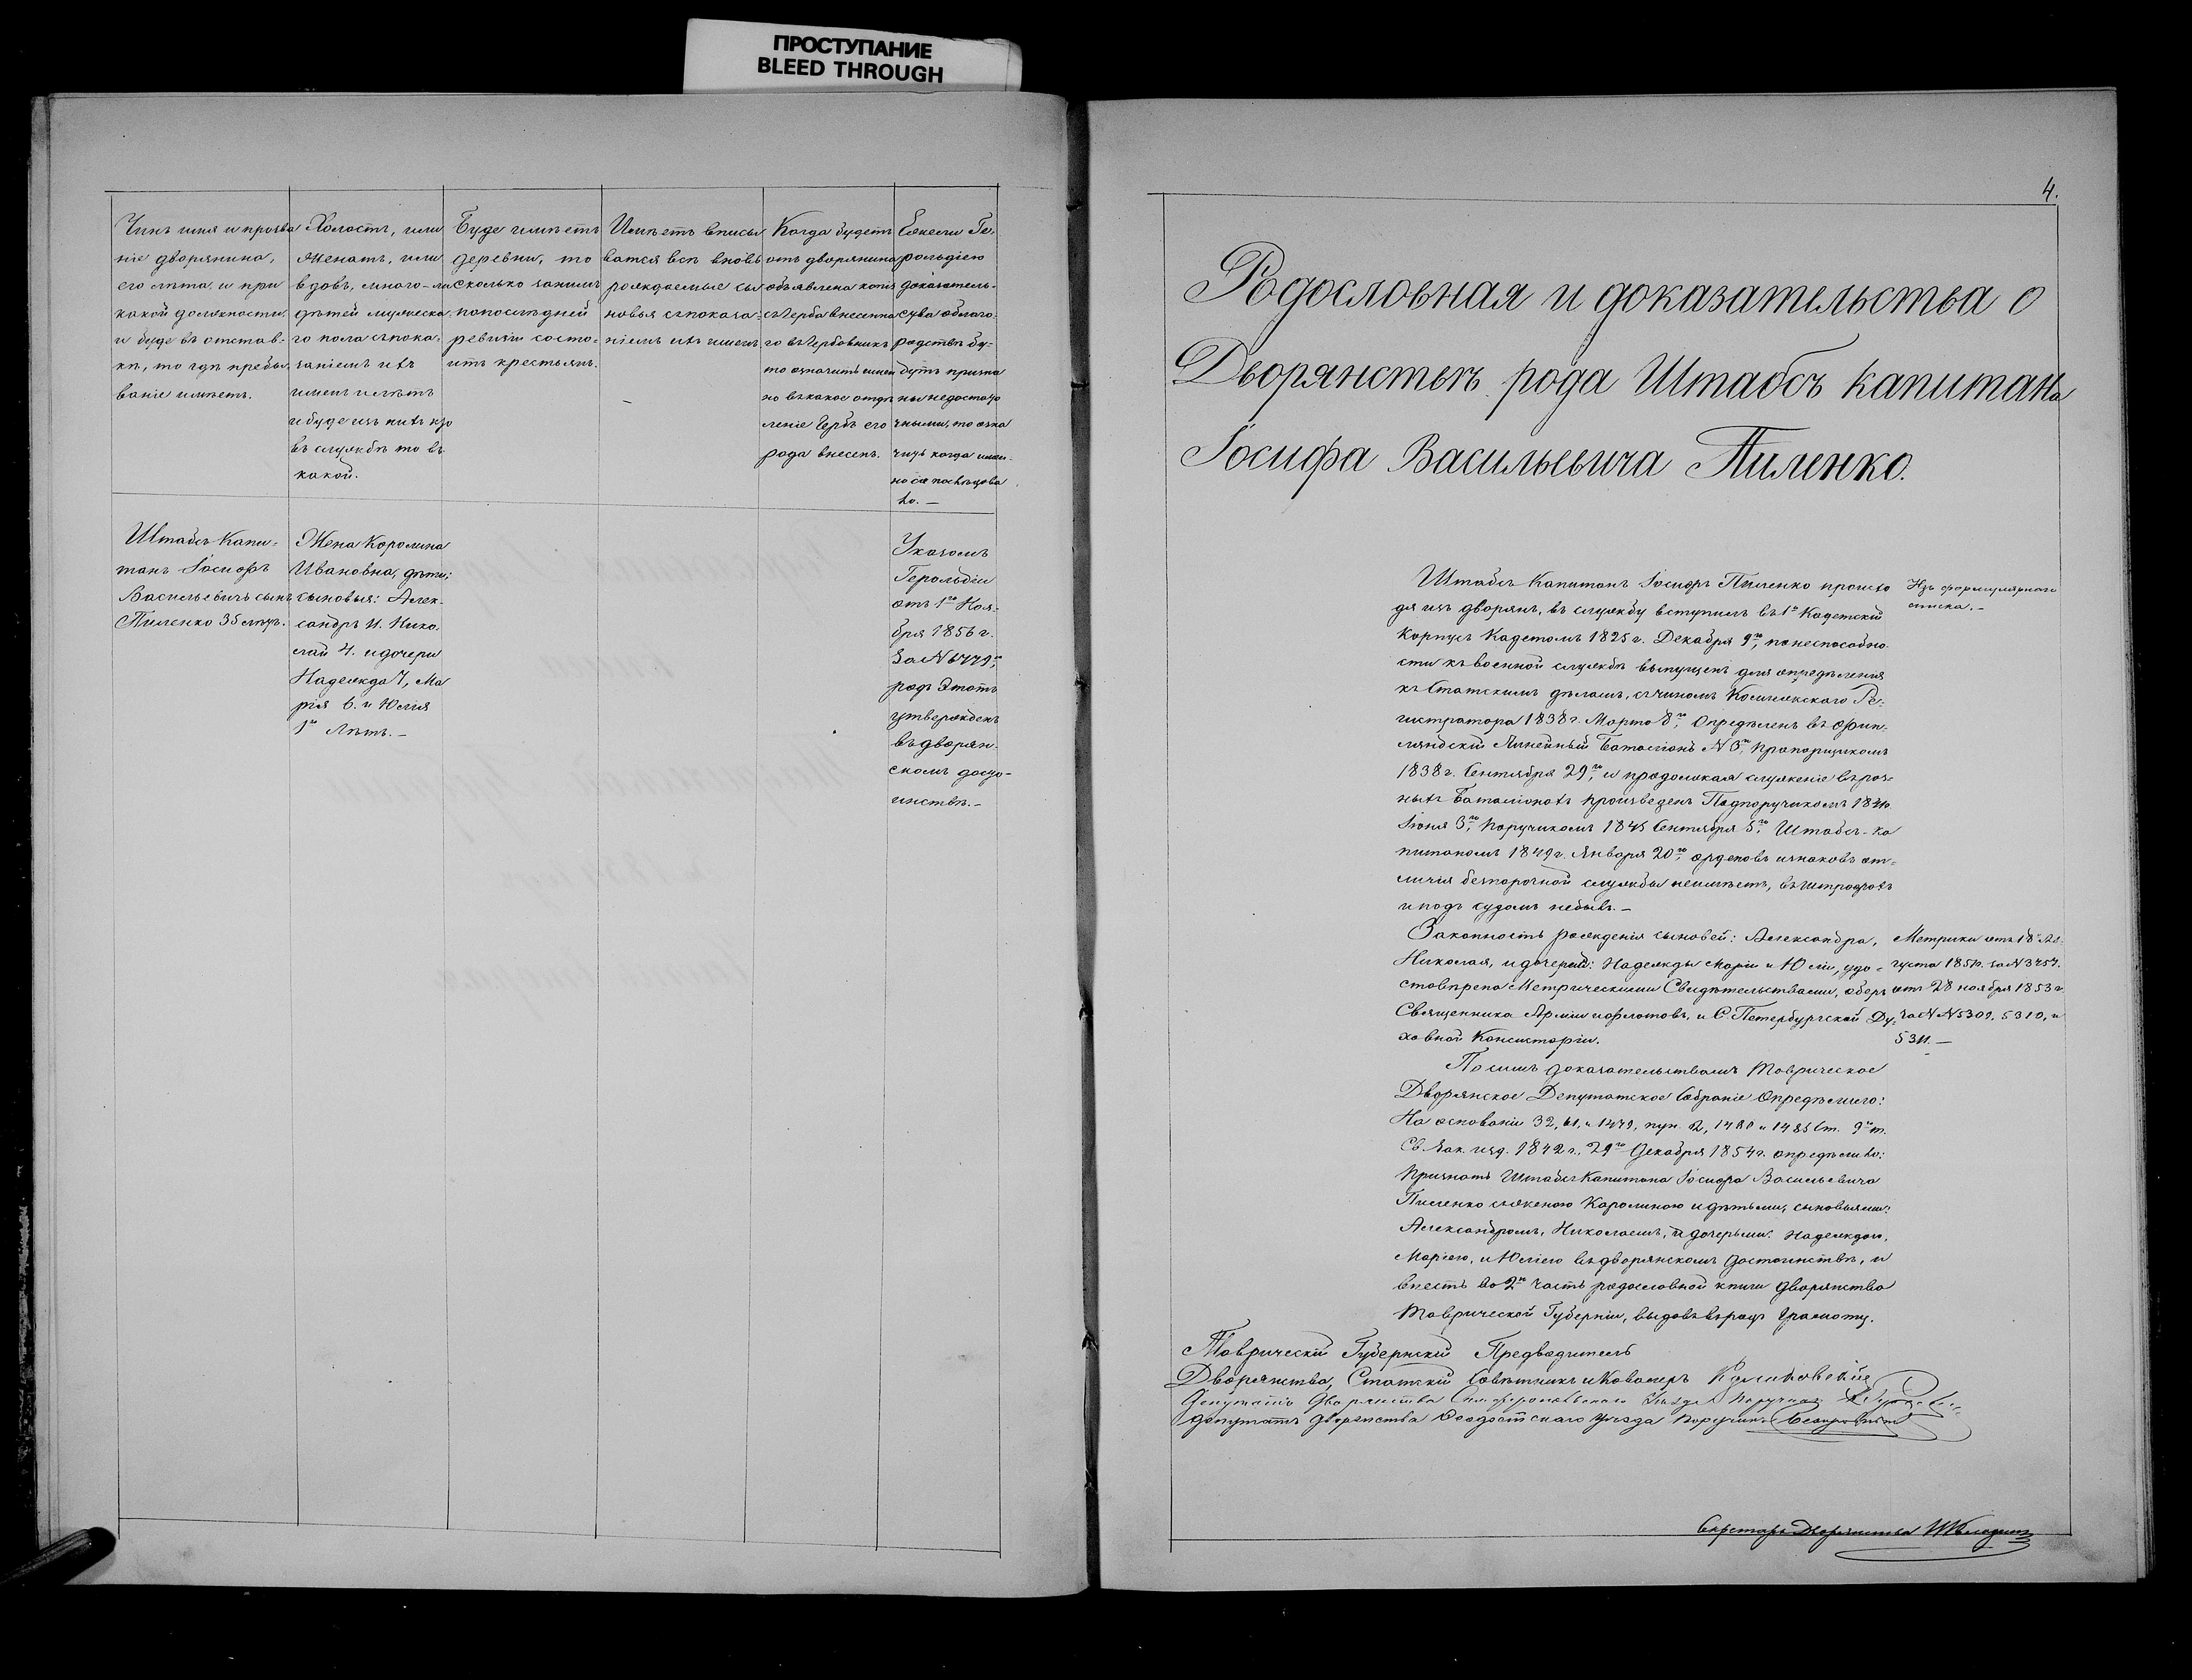 ПРОСТУПАНИЕ
BLEED THROUGH
Чинъ имя и прозва
ніе дворянина,
его лѣта, и при
какой должности,
и буде въ отстав-
кѣ, то гдѣ пребы-
ваніе имѣетъ.
Холостъ, или
женатъ, или
вдовъ, много-ли
дѣтей мужеска
го пола съ пока-
заніемъ ихъ
именъ и лѣтъ
и буде изъ нихъ кто
въ службѣ то въ
какой.
Буде имѣетъ
деревни, то
сколько за нимъ
по послѣдней
ревизіи состо-
итъ крестьянъ.
Имѣетъ вписы
ватся всѣ вновь
рождаемые сы
новья съ показа-
ніемъ ихъ именъ
Когда будетъ
отъ дворянина
объявлена копія
съ Герба внесенна
го въ Гербовникъ
то означить имен
но въ какое отдѣ
леніе Гербъ его
рода внесенъ.
Ежели Ге-
рольдіею
доказатель-
ства о благо-
родствѣ бу-
дутъ призна
ны недостато
чными, то озна
чить когда имен-
но сіе послѣдова
ло. —
Штабсъ Капи-
танъ Іосифъ
Васильевичъ сынъ
Пиленко 35 лѣтъ.
Жена Каролина
Ивановна, дѣти:
сыновья: Алек-
сандръ 11. Нико-
лай 4. и дочери
Надежда 7, Ма
рія 6. и Юлія
1го Лѣтъ. —
Указомъ
Герольдіи
отъ 1го Ноя-
бря 1856 г.
За № 6779м,
родъ Этотъ
утвержденъ
въ дворян-
скомъ досто-
инствѣ. —
4.
Родословная и доказательства о
Дворянствѣ рода Штабсъ капитана
Іосифа Васильевича Пиленко.
Штабсъ Капитанъ Іосифъ Пиленко происхо
дя изъ дворянъ, въ службу вступилъ въ 1й Кадетскій
Корпусъ Кадетомъ 1825 г. Декабря 9го, по неспособно-
сти къ военной службѣ выпущенъ для опредѣленія
къ Статскимъ дѣламъ, съ чиномъ Коллежскаго Ре-
гистратора 1838 г. Марта 8го, Опредѣленъ въ Фин-
ляндскій Линейный Баталіонъ Прапорщикомъ
1838 г. Сентября 29го, и продолжая служеніе въ раз-
ныхъ Баталіонахъ произведенъ Подпоручикомъ
Іюня 3го, Поручикомъ 1845 Сентября 5го, Штабсъ-ка
питаномъ 1849 г. Января 20го, орденовъ и знаковъ от-
личія безпорочной службы неимѣетъ, въ штрафахъ
и подъ судомъ небылъ. —
Изъ формулярнаго
списка. —
Законность рожденія сыновей: Александра,
Николая, и дочерей: Надежды Маріи и Юліи, удо-
стовѣрена Метрическими Свидѣтельствами, оберъ
Священника Арміи и флотовъ, и С. Петербургской Ду-
ховной Консисторіи.
Метрики отъ 18 Ав-
густа за № 3757.
отъ 28 ноября 1853 г.
за №№ 5309, 5310, и
5311. —
По симъ доказательствамъ Таврическое
Дворянское Депутатское Собраніе Опредѣлило:
На основаніи 32, 61, и 1479, пун. 2, 1480 и 1485 Ст. 9го т.
Св. Зак. изд. 1842 г., 29го Декабря 1854 г. опредѣлило:
Признать Штабсъ Капитана Іосифа Васильевича
Пиленко съ женою Каролиною и дѣтьми, сыновьями:
Александромъ, Николаемъ, и дочерьми: Надеждою,
Маріею, и Юліею въ дворянскомъ достоинствѣ, и
внесть во 2ю часть родословной книги дворянства
Таврической Губерніи, выдавъ въ родъ Грамоту.
Таврическій Губернскій Предводитель
Дворянства, Статскій Совѣтникъ и Кавалеръ
Депутатъ Дворянства Симферопольскаго Уѣзда Поручикъ
Депутатъ Дворянства Ѳеодосійскаго Уѣзда Поручикъ
Секретарь Дворянства